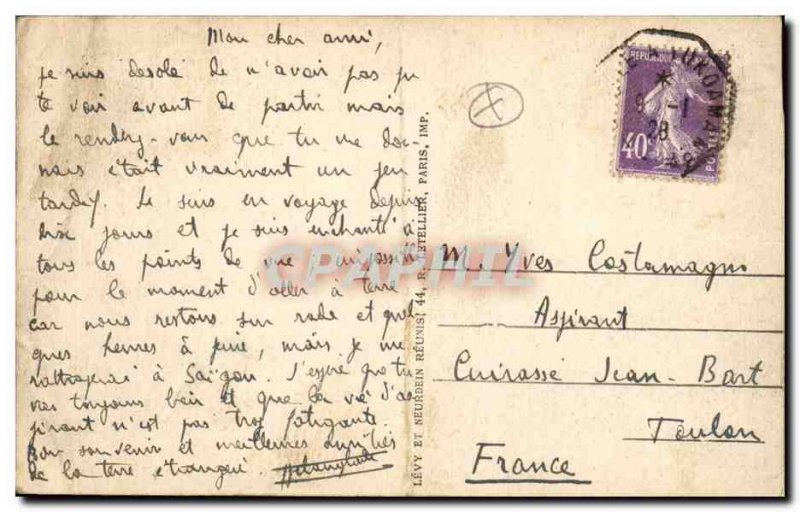 Mon cher ami,
je suis désolé de n'avoir pas pu
te voir avant de partir mais
le rendez-vous que tu me don-
nais était vraiment un peu
tardif. Je suis en voyage depuis
dix jours et je suis enchanté à
tous les points de vue ; impossible
pour le moment d'aller à terre
car nous restons sur rade et quel
ques heures à peine, mais je me
rattraperai à Saïgon. J'espère que tu
vas toujours bien et que la vie d'as
pirant n'est pas trop fatigante
Bon souvenir et meilleures amitiés
de la terre étrangère.
LÉVY ET NEURDEIN RÉUNIS, 44, R. LETELLIER, PARIS, IMP.
CPAPHIL
REPUBLIQUE
40c
POSTES
YOKOHAMA
9 -1
28
M. Yves Costamagno
Aspirant
Cuirassé Jean-Bart
Toulon
France